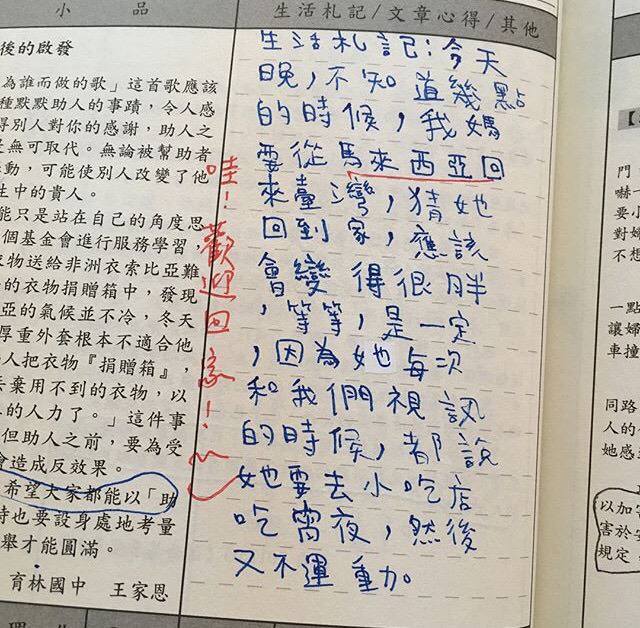 小品
生活札記/文章心得/其他
後的啟發
為誰而做的歌」這首歌應該
種默默助人的事蹟，令人感
得別人對你的感謝，助人之
是無可取代。無論被幫助者
動，可能使別人改變了他
生中的貴人。
能只是站在自己的角度思
個基金會進行服務學習，
衣物送給非洲衣索比亞難
的衣物捐贈箱中，發現
亞的氣候並不冷，冬天
厚重外套根本不適合他
人把衣物『捐贈箱』，
丟棄用不到的衣物，以
的人力了。」這件事
但助人之前，要為受
會造成反效果。
希望大家都能以「助
時也要設身處地考量
舉才能圓滿。
育林國中 王家恩
生活札記：今天
晚，不知道幾點
的時候，我媽
要從馬來西亞回
來臺灣，猜她
回到家，應該
會變得很胖
，等等，是一定
，因為她每次
和我們視訊
的時候，都說
她要去小吃店
吃宵夜，然後
又不運動。
哇！歡迎回家！
【
門
嚇
要
對婦
不想
一點
讓婦
車撞
同路
人的
她感
以加害
害於安
規定